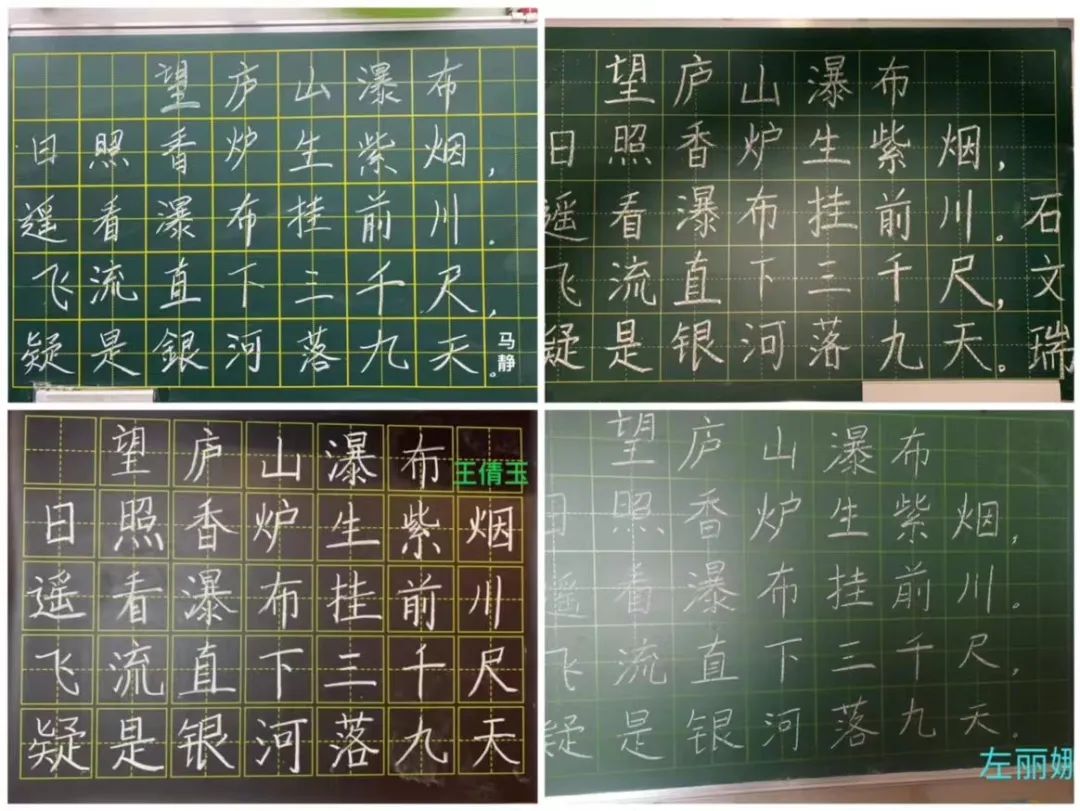 望庐山瀑布
日照香炉生紫烟，
遥看瀑布挂前川.
飞流直下三千尺，
疑是銀河落九天。
马静
望庐山瀑布
日照香炉生紫烟，
遥看瀑布挂前川。
飞流直下三千尺，
疑是银河落九天。
石文瑞
望庐山瀑布
王倩玉
日照香炉生紫烟
遥看瀑布挂前川
飞流直下三千尺
疑是银河落九天
望庐山瀑布
日照香炉生紫烟，
遥看瀑布挂前川。
飞流直下三千尺，
疑是银河落九天。
左丽娜